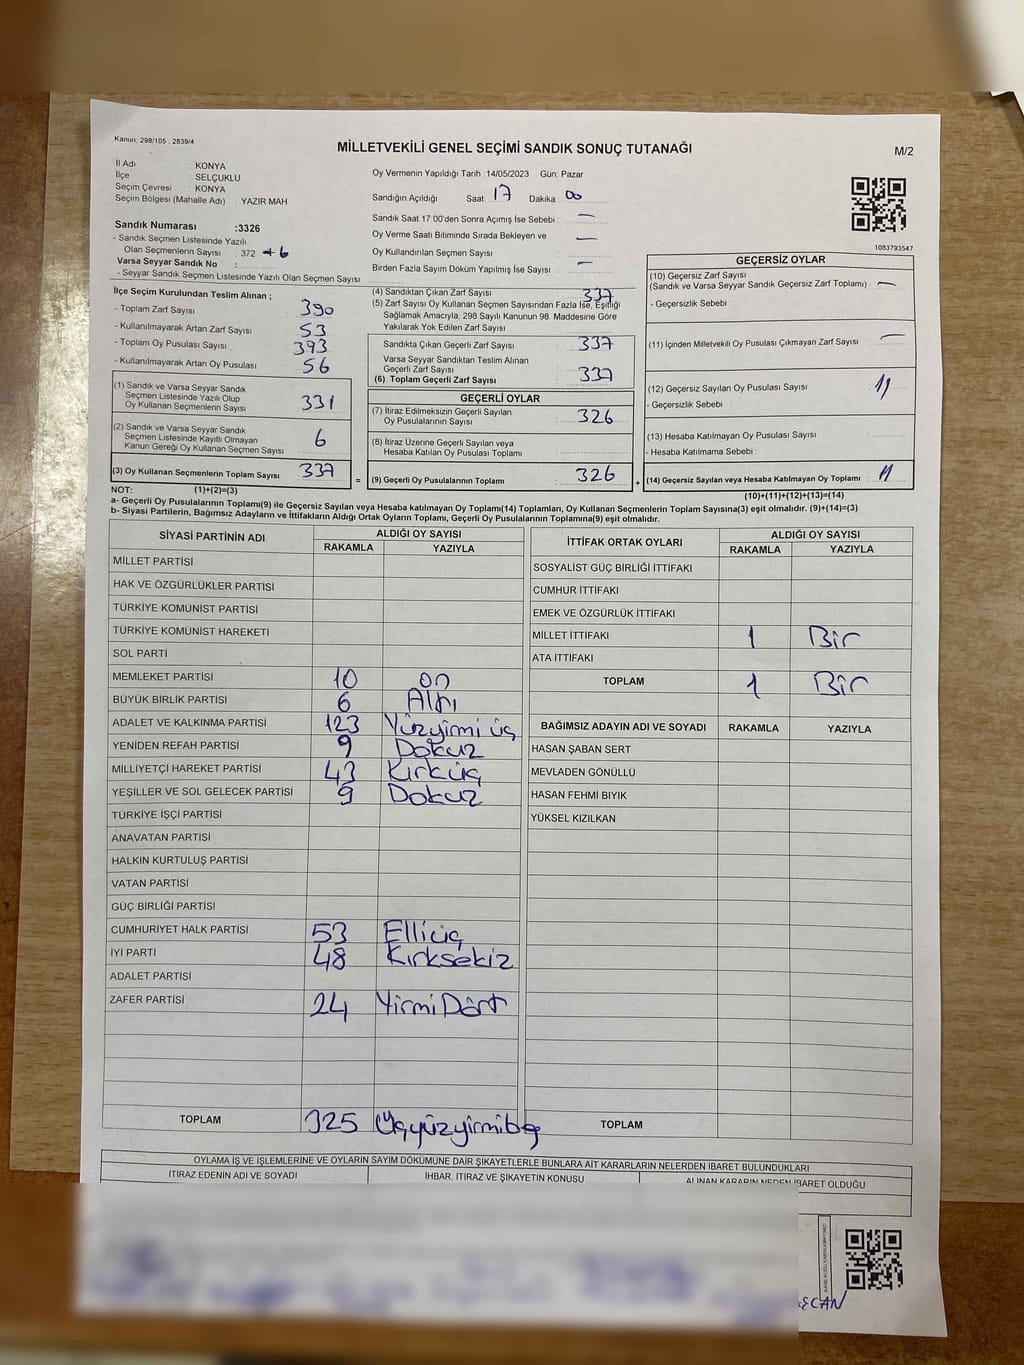 Kanun: 298/105 , 2839/4
MİLLETVEKİLİ GENEL SEÇİMİ SANDIK SONUÇ TUTANAĞI
M/2
İl Adı : KONYA
İlçe : SELÇUKLU
Seçim Çevresi : KONYA
Seçim Bölgesi (Mahalle Adı) : YAZIR MAH.
Sandık Numarası :3326
- Sandık Seçmen Listesinde Yazılı
Olan Seçmenlerin Sayısı : 372 +6
Varsa Seyyar Sandık No :
- Seyyar Sandık Seçmen Listesinde Yazılı Olan Seçmen Sayısı
Oy Vermenin Yapıldığı Tarih :14/05/2023 Gün: Pazar
Sandığın Açıldığı Saat: 17 Dakika : 00
Sandık Saat 17:00'den Sonra Açımış İse Sebebi : —
Oy Verme Saati Bitiminde Sırada Bekleyen ve
Oy Kullandırılan Seçmen Sayısı —
Birden Fazla Sayım Döküm Yapılmış İse Sayısı : —
1083793547
İlçe Seçim Kurulundan Teslim Alınan ;
- Toplam Zarf Sayısı : 390
- Kullanılmayarak Artan Zarf Sayısı : 53
- Toplam Oy Pusulası Sayısı : 393
- Kullanılmayarak Artan Oy Pusulası : 56
(1) Sandık ve Varsa Seyyar Sandık
Seçmen Listesinde Yazılı Olup
Oy Kullanan Seçmenlerin Sayısı : 331
(2) Sandık ve Varsa Seyyar Sandık
Seçmen Listesinde Kayıtlı Olmayan
Kanun Gereği Oy Kullanan Seçmen Sayısı : 6
(3) Oy Kullanan Seçmenlerin Toplam Sayısı : 337
(4) Sandıktan Çıkan Zarf Sayısı : 337
(5) Zarf Sayısı Oy Kullanan Seçmen Sayısından Fazla İse, Eşitliği
Sağlamak Amacıyla, 298 Sayılı Kanunun 98. Maddesine Göre
Yakılarak Yok Edilen Zarf Sayısı :
Sandıkta Çıkan Geçerli Zarf Sayısı : 337
Varsa Seyyar Sandıktan Teslim Alınan
Geçerli Zarf Sayısı
(6) Toplam Geçerli Zarf Sayısı : 337
GEÇERLİ OYLAR
(7) İtiraz Edilmeksizin Geçerli Sayılan
Oy Pusulalarının Sayısı : 326
(8) İtiraz Üzerine Geçerli Sayılan veya
Hesaba Katılan Oy Pusulası Toplamı :
= (9) Geçerli Oy Pusulalarının Toplamı : 326
GEÇERSİZ OYLAR
(10) Geçersiz Zarf Sayısı
(Sandık ve Varsa Seyyar Sandık Geçersiz Zarf Toplamı) : —
- Geçersizlik Sebebi :
(11) İçinden Milletvekili Oy Pusulası Çıkmayan Zarf Sayısı : —
(12) Geçersiz Sayılan Oy Pusulası Sayısı : 11
- Geçersizlik Sebebi :
(13) Hesaba Katılmayan Oy Pusulası Sayısı :
- Hesaba Katılmama Sebebi :
+ (14) Geçersiz Sayılan veya Hesaba Katılmayan Oy Toplamı : 11
NOT: (1)+(2)=(3)
(10)+(11)+(12)+(13)=(14)
a- Geçerli Oy Pusulalarının Toplamı(9) ile Geçersiz Sayılan veya Hesaba katılmayan Oy Toplamı(14) Toplamları, Oy Kullanan Seçmenlerin Toplam Sayısına(3) eşit olmalıdır. (9)+(14)=(3)
b- Siyasi Partilerin, Bağımsız Adayların ve İttifakların Aldığı Ortak Oyların Toplamı, Geçerli Oy Pusulalarının Toplamına(9) eşit olmalıdır.
SİYASİ PARTİNİN ADI ALDIĞI OY SAYISI
RAKAMLA YAZIYLA
MİLLET PARTİSİ
HAK VE ÖZGÜRLÜKLER PARTİSİ
TÜRKİYE KOMÜNİST PARTİSİ
TÜRKİYE KOMÜNİST HAREKETİ
SOL PARTİ
MEMLEKET PARTİSİ 10 on
BÜYÜK BİRLİK PARTİSİ 6 Altı
ADALET VE KALKINMA PARTİSİ 123 Yüzyirmi üç
YENİDEN REFAH PARTİSİ 9 Dokuz
MİLLİYETÇİ HAREKET PARTİSİ 43 Kırküç
YEŞİLLER VE SOL GELECEK PARTİSİ 9 Dokuz
TÜRKİYE İŞÇİ PARTİSİ
ANAVATAN PARTİSİ
HALKIN KURTULUŞ PARTİSİ
VATAN PARTİSİ
GÜÇ BİRLİĞİ PARTİSİ
CUMHURİYET HALK PARTİSİ 53 Elliüç
İYİ PARTİ 48 Kırksekiz
ADALET PARTİSİ
ZAFER PARTİSİ 24 Yirmi Dört
TOPLAM 325 Üçyüzyirmibeş
İTTİFAK ORTAK OYLARI ALDIĞI OY SAYISI
RAKAMLA YAZIYLA
SOSYALİST GÜÇ BİRLİĞİ İTTİFAKI
CUMHUR İTTİFAKI
EMEK VE ÖZGÜRLÜK İTTİFAKI
MİLLET İTTİFAKI 1 Bir
ATA İTTİFAKI
TOPLAM 1 Bir
BAĞIMSIZ ADAYIN ADI VE SOYADI RAKAMLA YAZIYLA
HASAN ŞABAN SERT
MEVLADEN GÖNÜLLÜ
HASAN FEHMİ BIYIK
YÜKSEL KIZILKAN
TOPLAM
OYLAMA İŞ VE İŞLEMLERİNE VE OYLARIN SAYIM DÖKÜMÜNE DAİR ŞİKAYETLERLE BUNLARA AİT KARARLARIN NELERDEN İBARET BULUNDUKLARI
İTİRAZ EDENİN ADI VE SOYADI İHBAR, İTİRAZ VE ŞİKAYETİN KONUSU ALINAN KARARIN NEDEN İBARET OLDUĞU